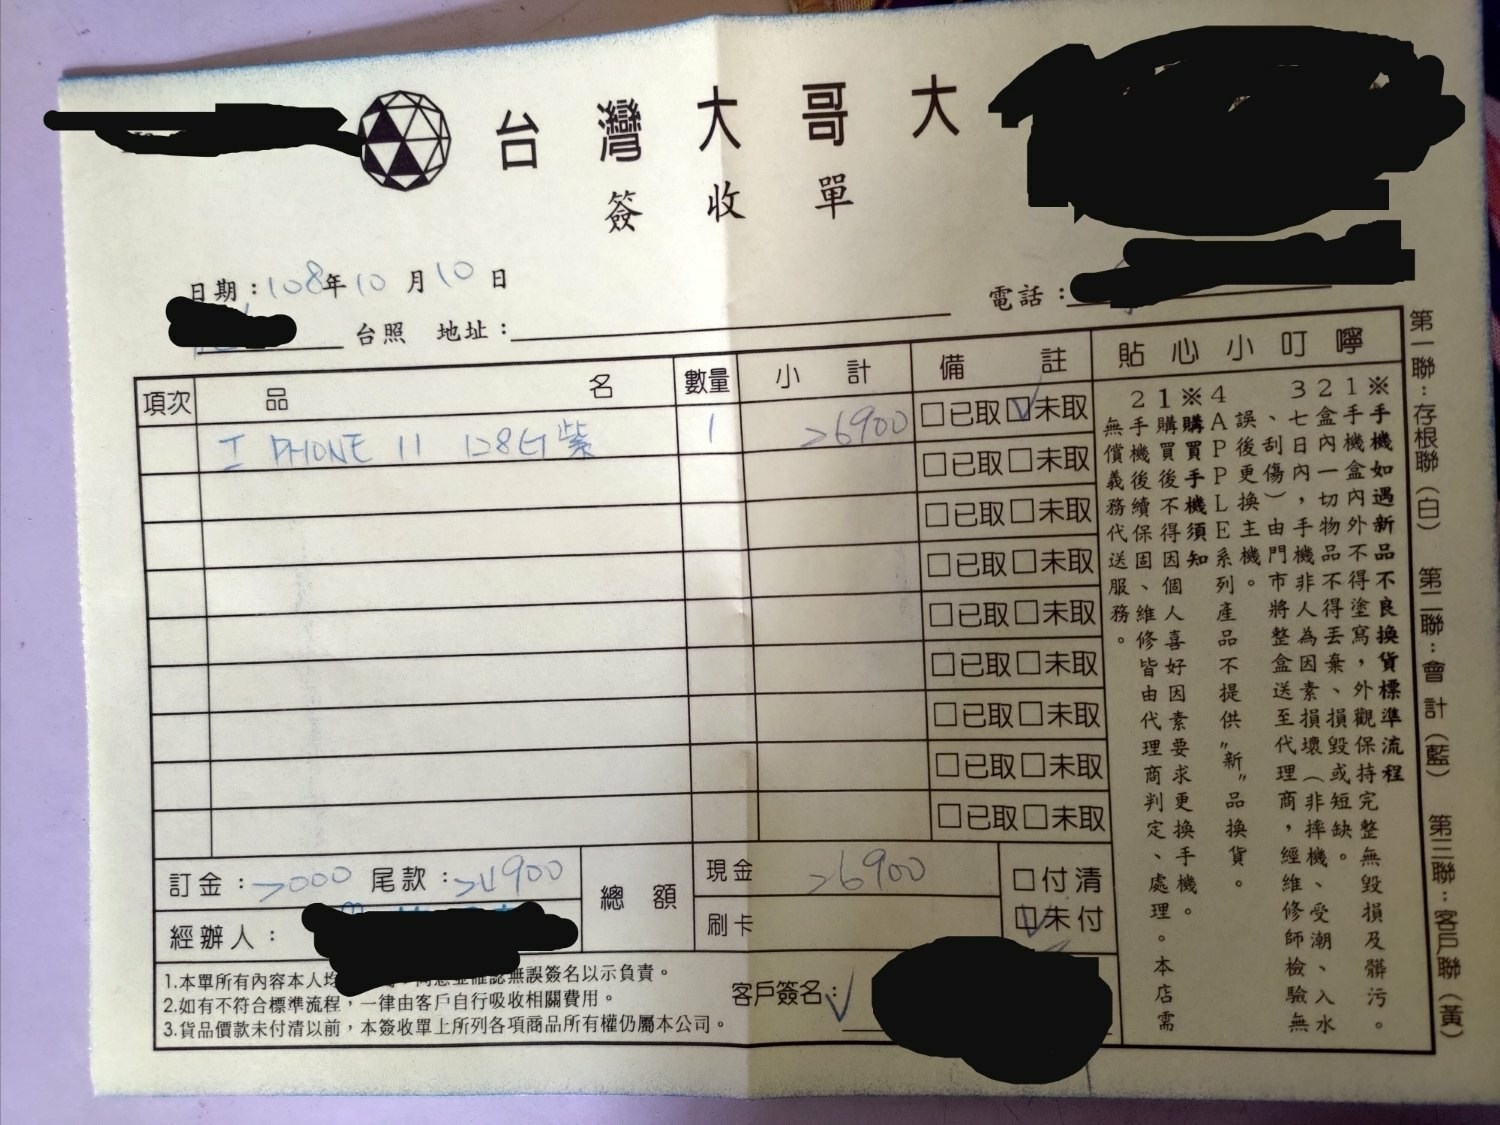 台灣大哥大
簽收單
日期：108年10月10日
電話：
台照 地址：
項次 品名 數量 小計 備註
I PHONE 11 128G 紫 1 26900 □已取☑未取
□已取□未取
□已取□未取
□已取□未取
□已取□未取
□已取□未取
□已取□未取
□已取□未取
□已取□未取
訂金：2000 尾款：24900
總額
現金 26900
刷卡
□付清
☑未付
經辦人：
1.本單所有內容本人均 無誤簽名以示負責。
2.如有不符合標準流程，一律由客戶自行吸收相關費用。
3.貨品價款未付清以前，本簽收單上所列各項商品所有權仍屬本公司。
客戶簽名：
貼心小叮嚀
※手機如遇新品不良換貨標準流程
1手機盒內外不得塗寫，外觀保持完整無毀損及髒污。
2盒內一切物品不得丟棄、損毀或短缺。
3七日內，手機非人為因素損壞（非摔機、受潮、入水
、刮傷）由門市將整盒送至代理商，經維修師檢驗無
誤後更換主機。
4APPLE系列產品不提供"新"品換貨。
※購買手機須知
1購買後不得因個人喜好因素要求更換手機。
2手機後續保固、維修皆由代理商判定、處理。本店需
無償義務代送服務。
第一聯：存根聯（白） 第二聯：會計（藍） 第三聯：客戶聯（黃）